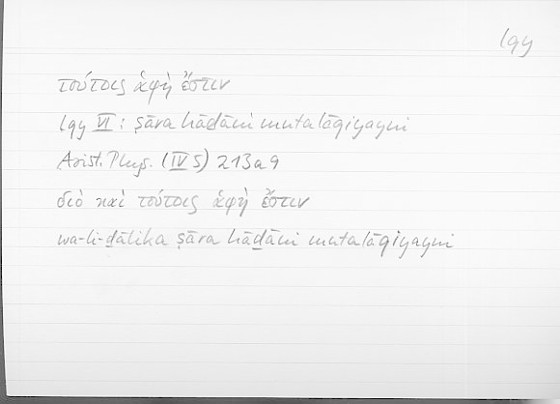 lqy
τούτοις ἁφὴ ἔστιν
lqy VI : ṣāra hāḏāni mutalāqiyayni
Arist. Phys. (IV 5) 213a9
διὸ καὶ τούτοις ἁφὴ ἔστιν
wa-li-ḏālika ṣāra hāḏāni mutalāqiyayni